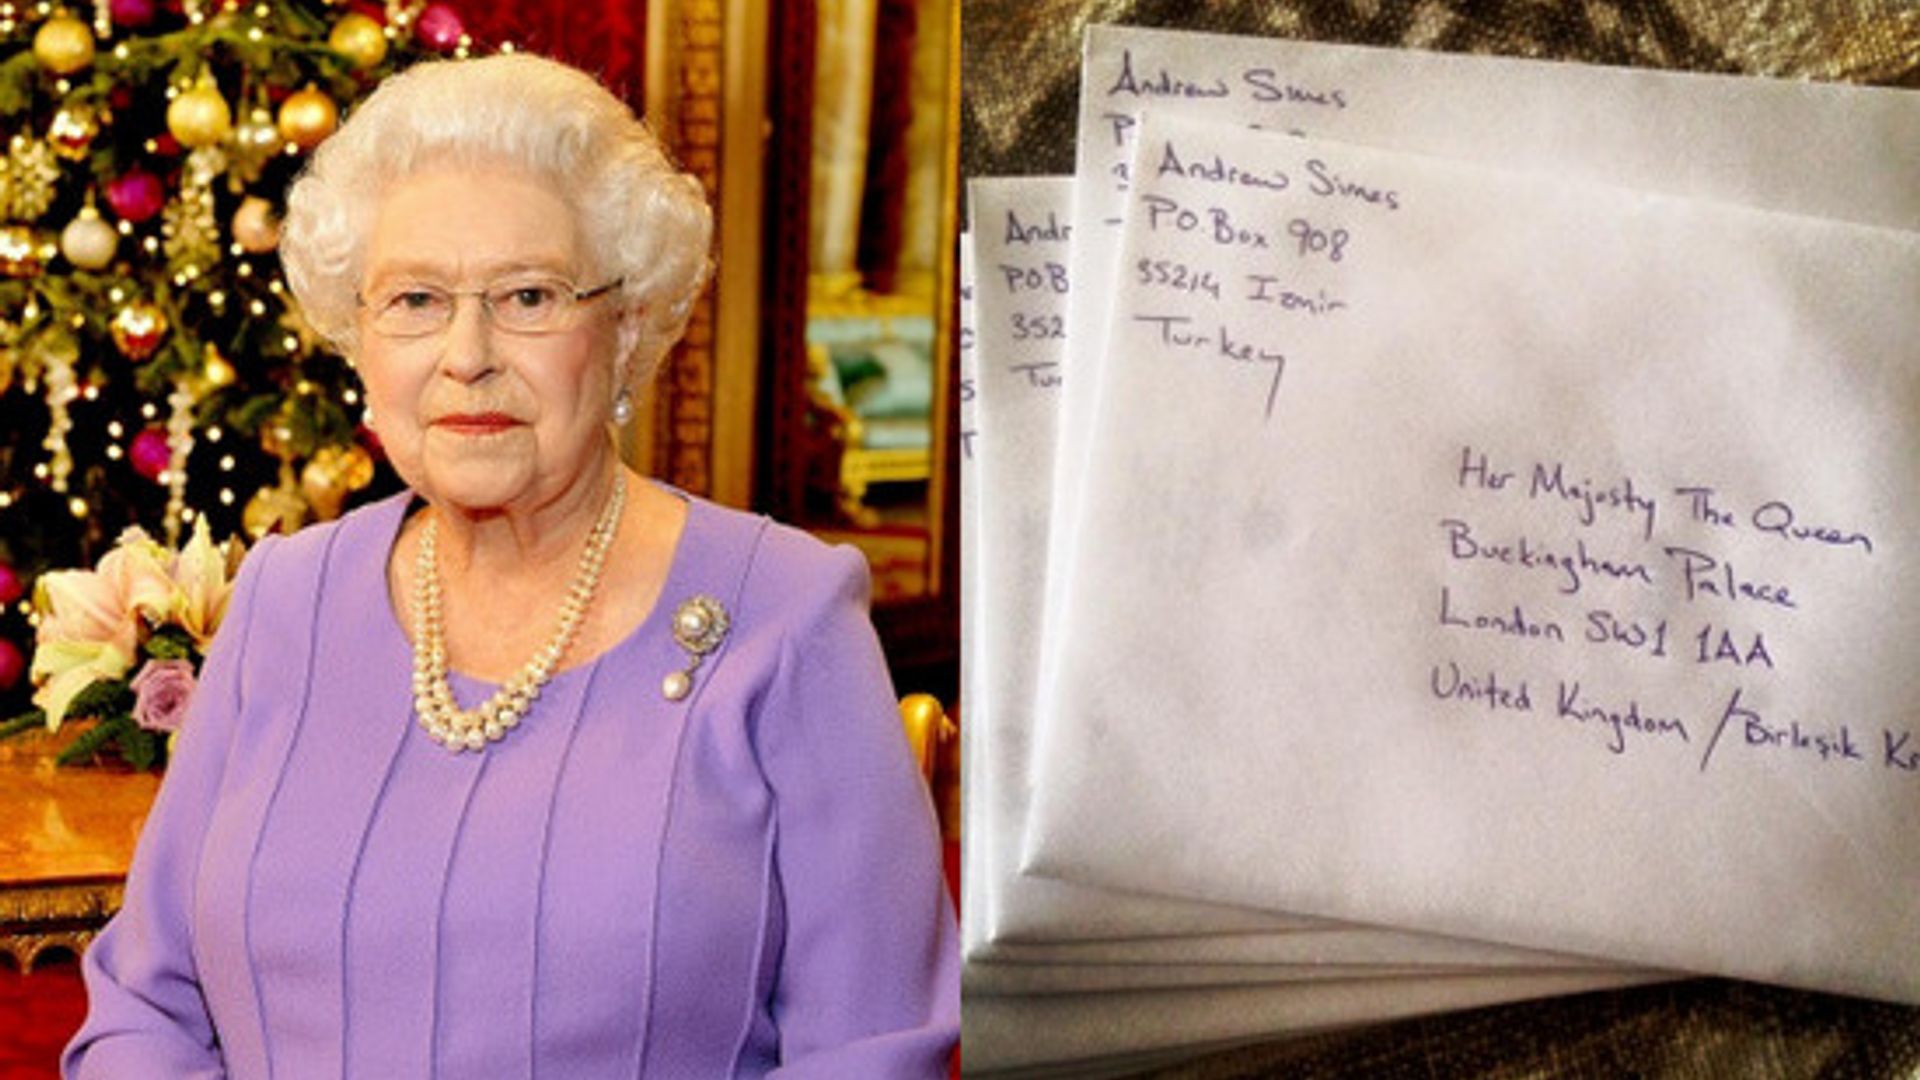 Andrew Simes
P
Andr
POB
352
Tur
Andrew Simes
PO Box 908
35214 Izmir
Turkey
Her Majesty The Queen
Buckingham Palace
London SW1 1AA
United Kingdom / Birleşik Kr